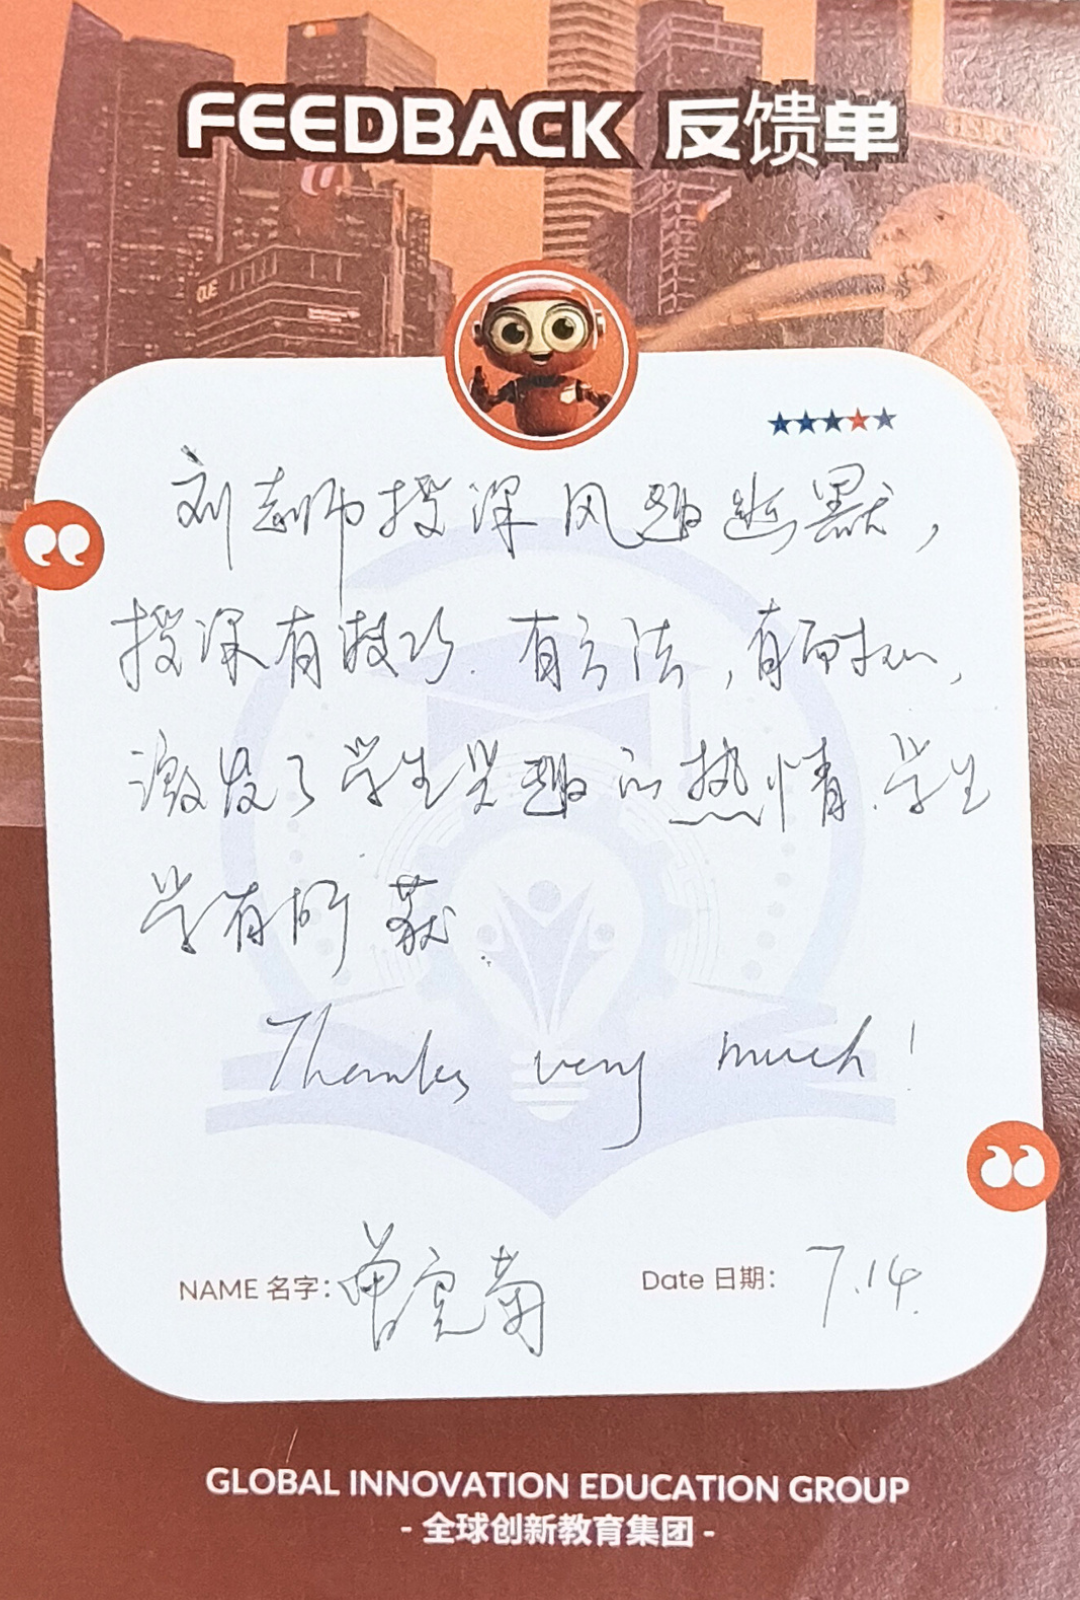 FEEDBACK 反馈单
HSBC
OUE
刘老师授课风趣幽默，
授课有技巧．有方法，有耐心，
激发了学生兴趣的热情．学生
学有所获．
Thanks very much！
NAME 名字: 曾宪菊
Date 日期: 7.14.
GLOBAL INNOVATION EDUCATION GROUP
- 全球创新教育集团 -